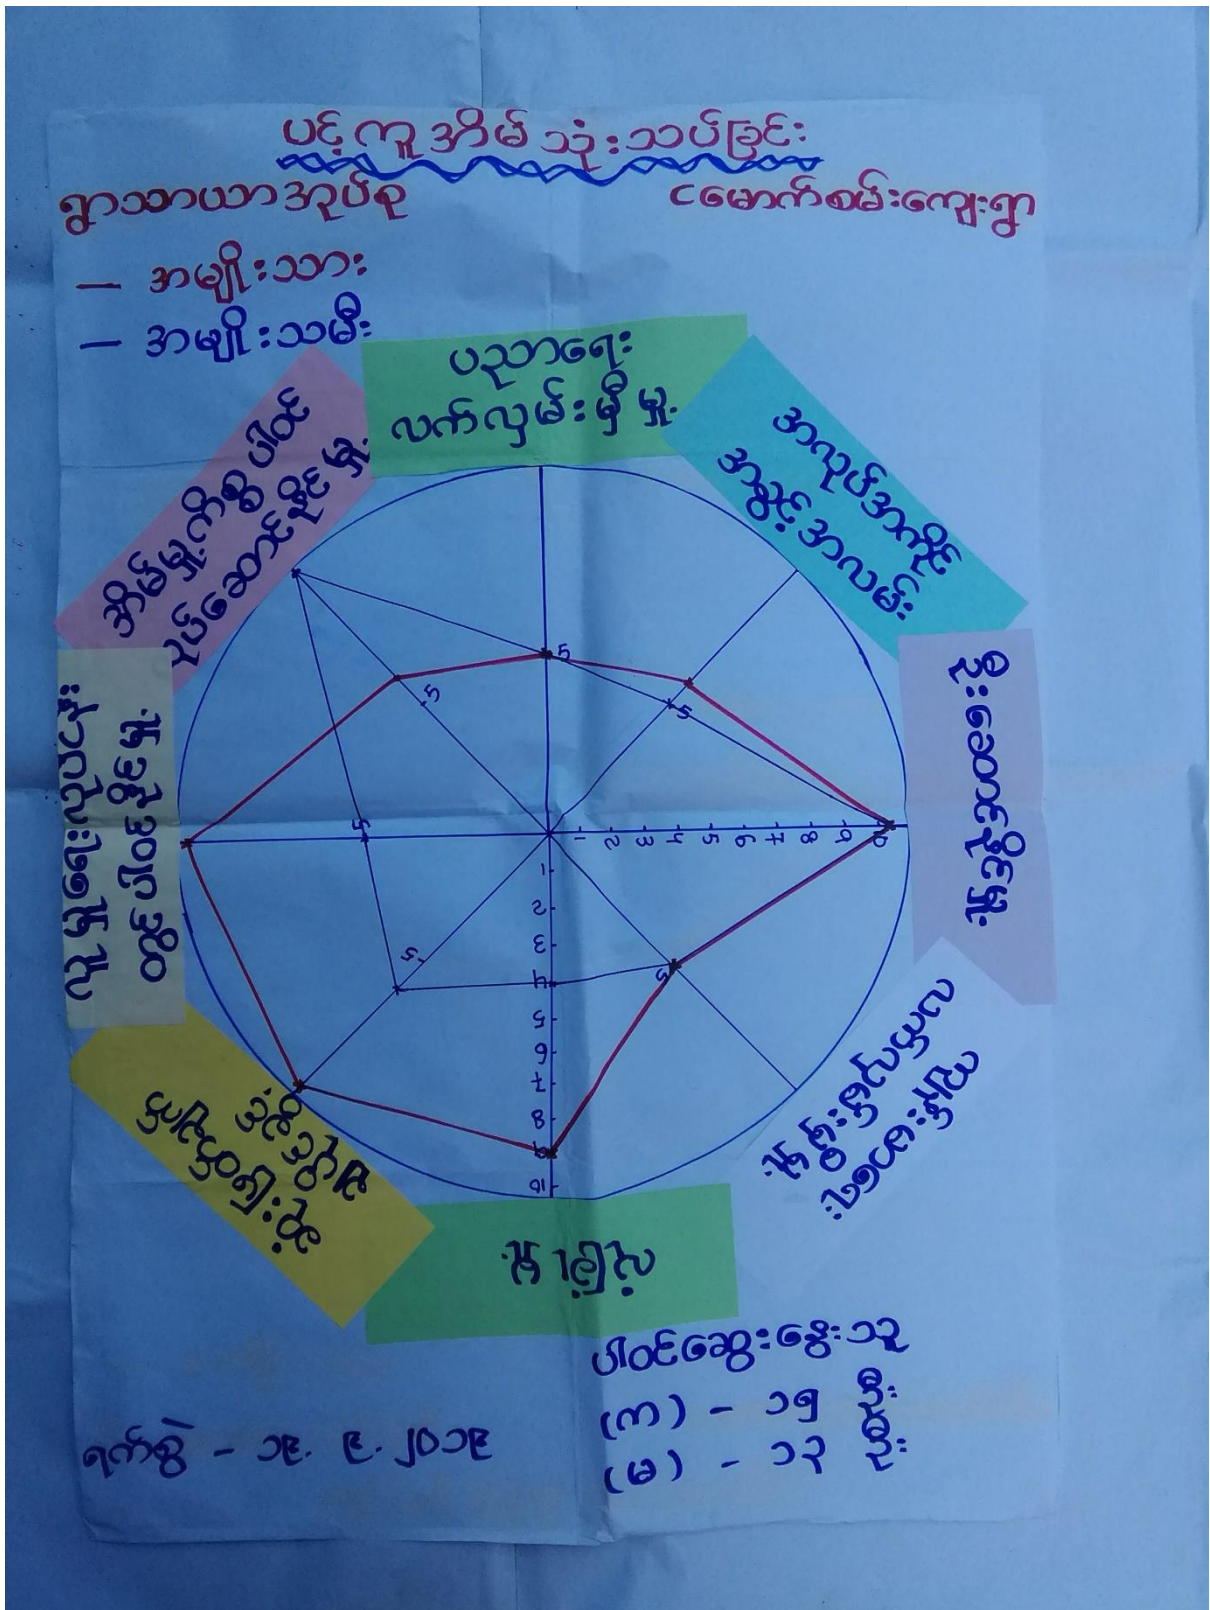 ပင့်ကူအိမ်သုံးသပ်ခြင်း
ရွာသာယာအုပ်စု
ငမောက်စမ်းကျေးရွာ
— အမျိုးသား
— အမျိုးသမီး
ပညာရေး
လက်လှမ်းမှီမှု
အလုပ်အကိုင်
အခွင့်အလမ်း
ဦးဆောင်နိုင်မှု
ကျန်းမာရေး
လက်လှမ်းမှီမှု
လှုံ့ခြုံမှု
ဆုံးဖြတ်ချက်
ချခွင့်
လူမှုရေးလုပ်ငန်း
တွင်ပါဝင်နိုင်မှု
အိမ်မှုကိစ္စပါဝင်
လုပ်ဆောင်နိုင်မှု
5
5
5
5
5
5
1 2 3 4 5 6 7 8 9 10
1
2
3
4
5
6
7
8
9
10
ပါဝင်ဆွေးနွေးသူ
(က) - ၁၅ ဦး
(မ) - ၁၃ ဦး
ရက်စွဲ - ၁၉. ၉. ၂၀၁၉